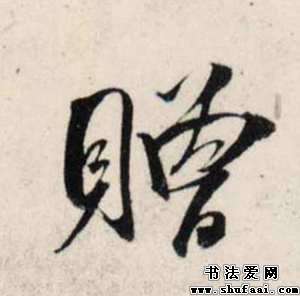 贈
书法爱网
www.shufaai.com